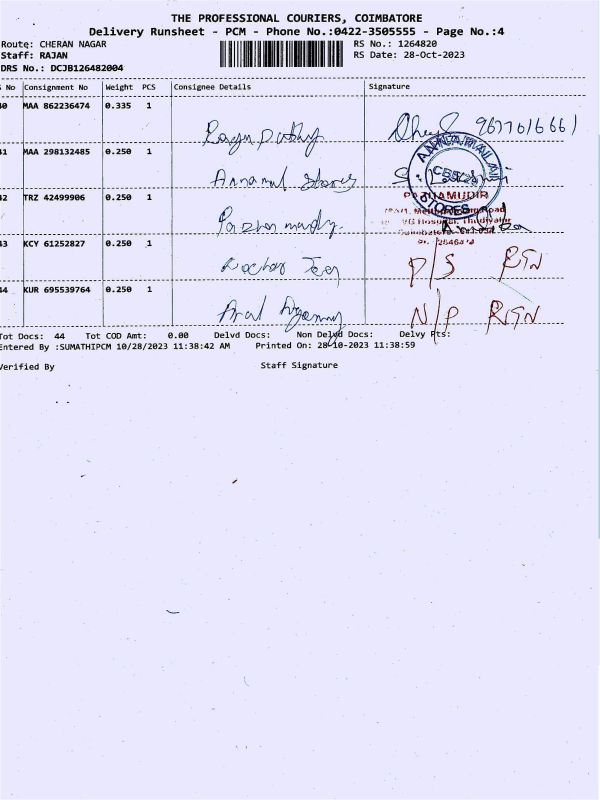 THE PROFESSIONAL COURIERS, COIMBATORE
Delivery Runsheet - PCM - Phone No.:0422-3505555 - Page No.:4
Route: CHERAN NAGAR RS No.: 1264820
Staff: RAJAN RS Date: 28-Oct-2023
DRS No.: DCJB126482004
S No Consignment No Weight PCS Consignee Details Signature
40 MAA 862236474 0.335 1
41 MAA 298132485 0.250 1
Annamal Stores
ANNAMALAI STORES
42 TRZ 42499906 0.250 1
PAZHAMUDIR
43 KCY 61252827 0.250 1
D/S RTN
44 KUR 695539764 0.250 1
N/P RTN
Tot Docs: 44 Tot COD Amt: 0.00 Delvd Docs: Non Delvd Docs: Delvy Pts:
Entered By :SUMATHIPCM 10/28/2023 11:38:42 AM Printed On: 28-10-2023 11:38:59
Verified By Staff Signature